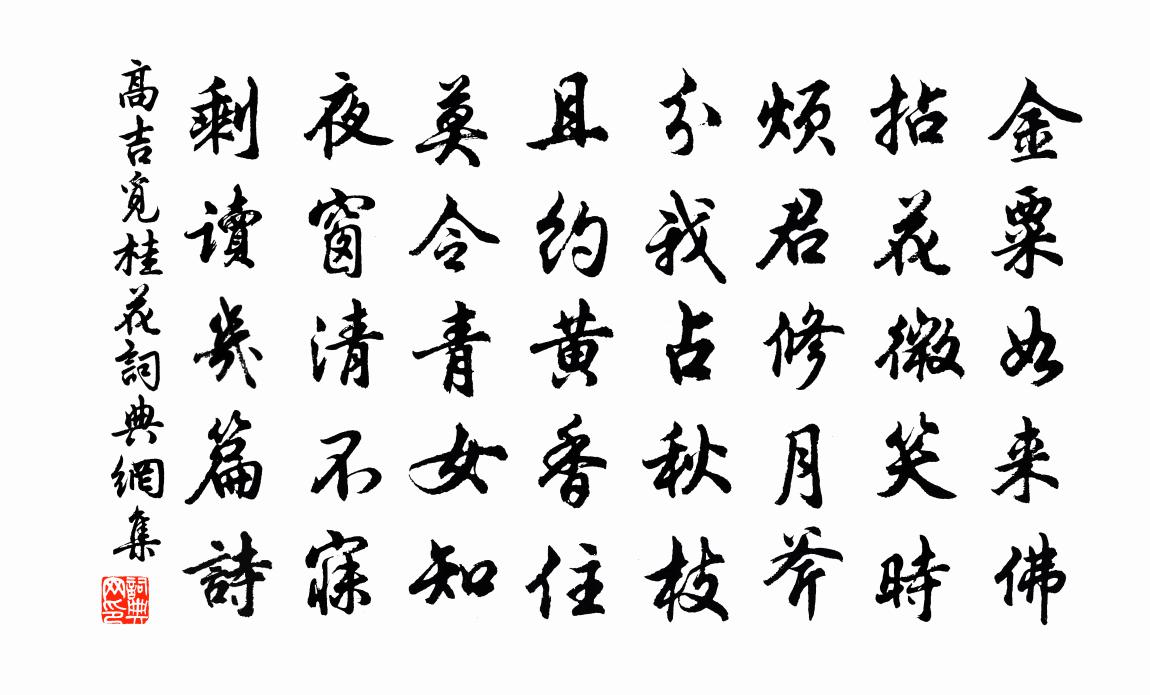 金粟如来佛
拈花微笑時
煩君修月斧
分我占秋枝
且約黄香住
莫令青女知
夜窗清不寐
剩讀幾篇詩
高吉覓桂花詞典網集
詞典
网印